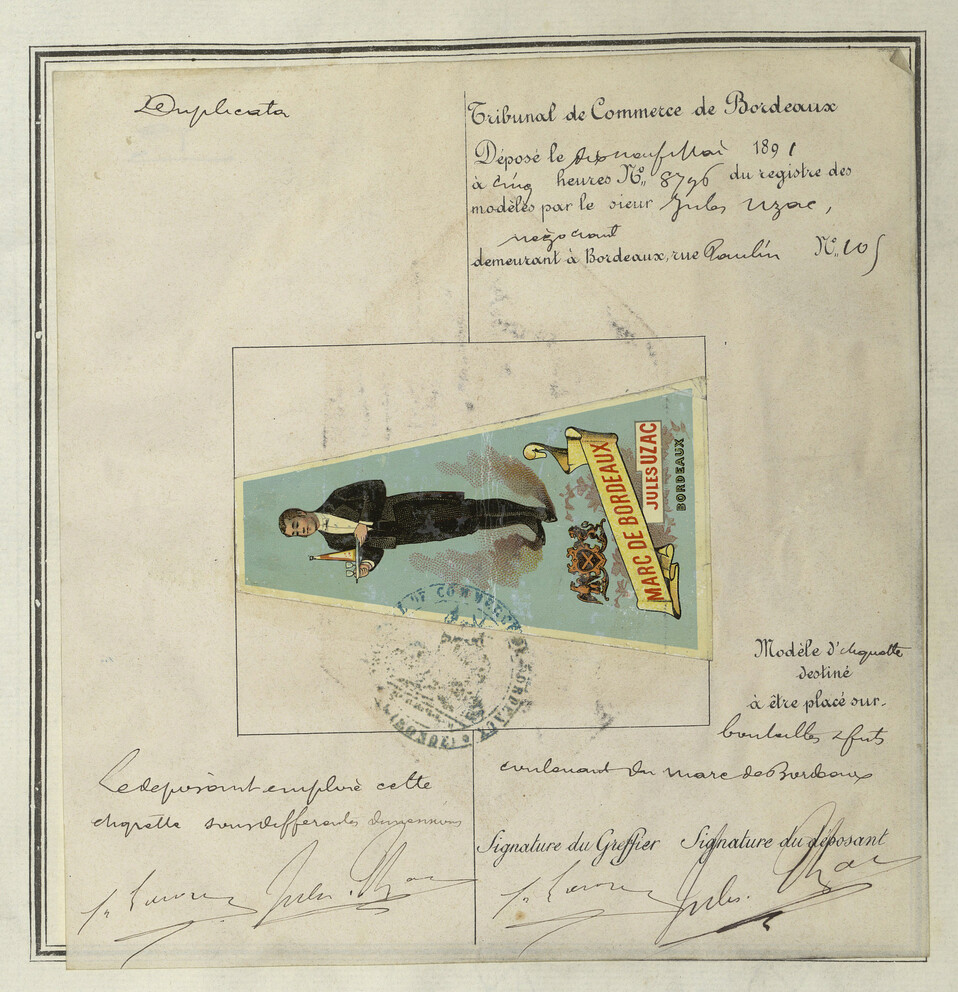 Duplicata
Tribunal de Commerce de Bordeaux
Déposé le dix neuf Mai 1891
à cinq heures No. 8796 du registre des
modèles par le sieur Jules Uzac,
négociant
demeurant à Bordeaux, rue Paulin No. 105
MARC DE BORDEAUX
JULES UZAC
BORDEAUX
DE COMMERCE DE BORDEAUX
Modèle d'etiquette
destiné
à être placé sur
bouteilles & futs
contenant du marc de Bordeaux
Le déposant emploie cette
etiquette sous differentes dimensions
Signature du Greffier Signature du déposant
Jules Uzac
Jules Uzac